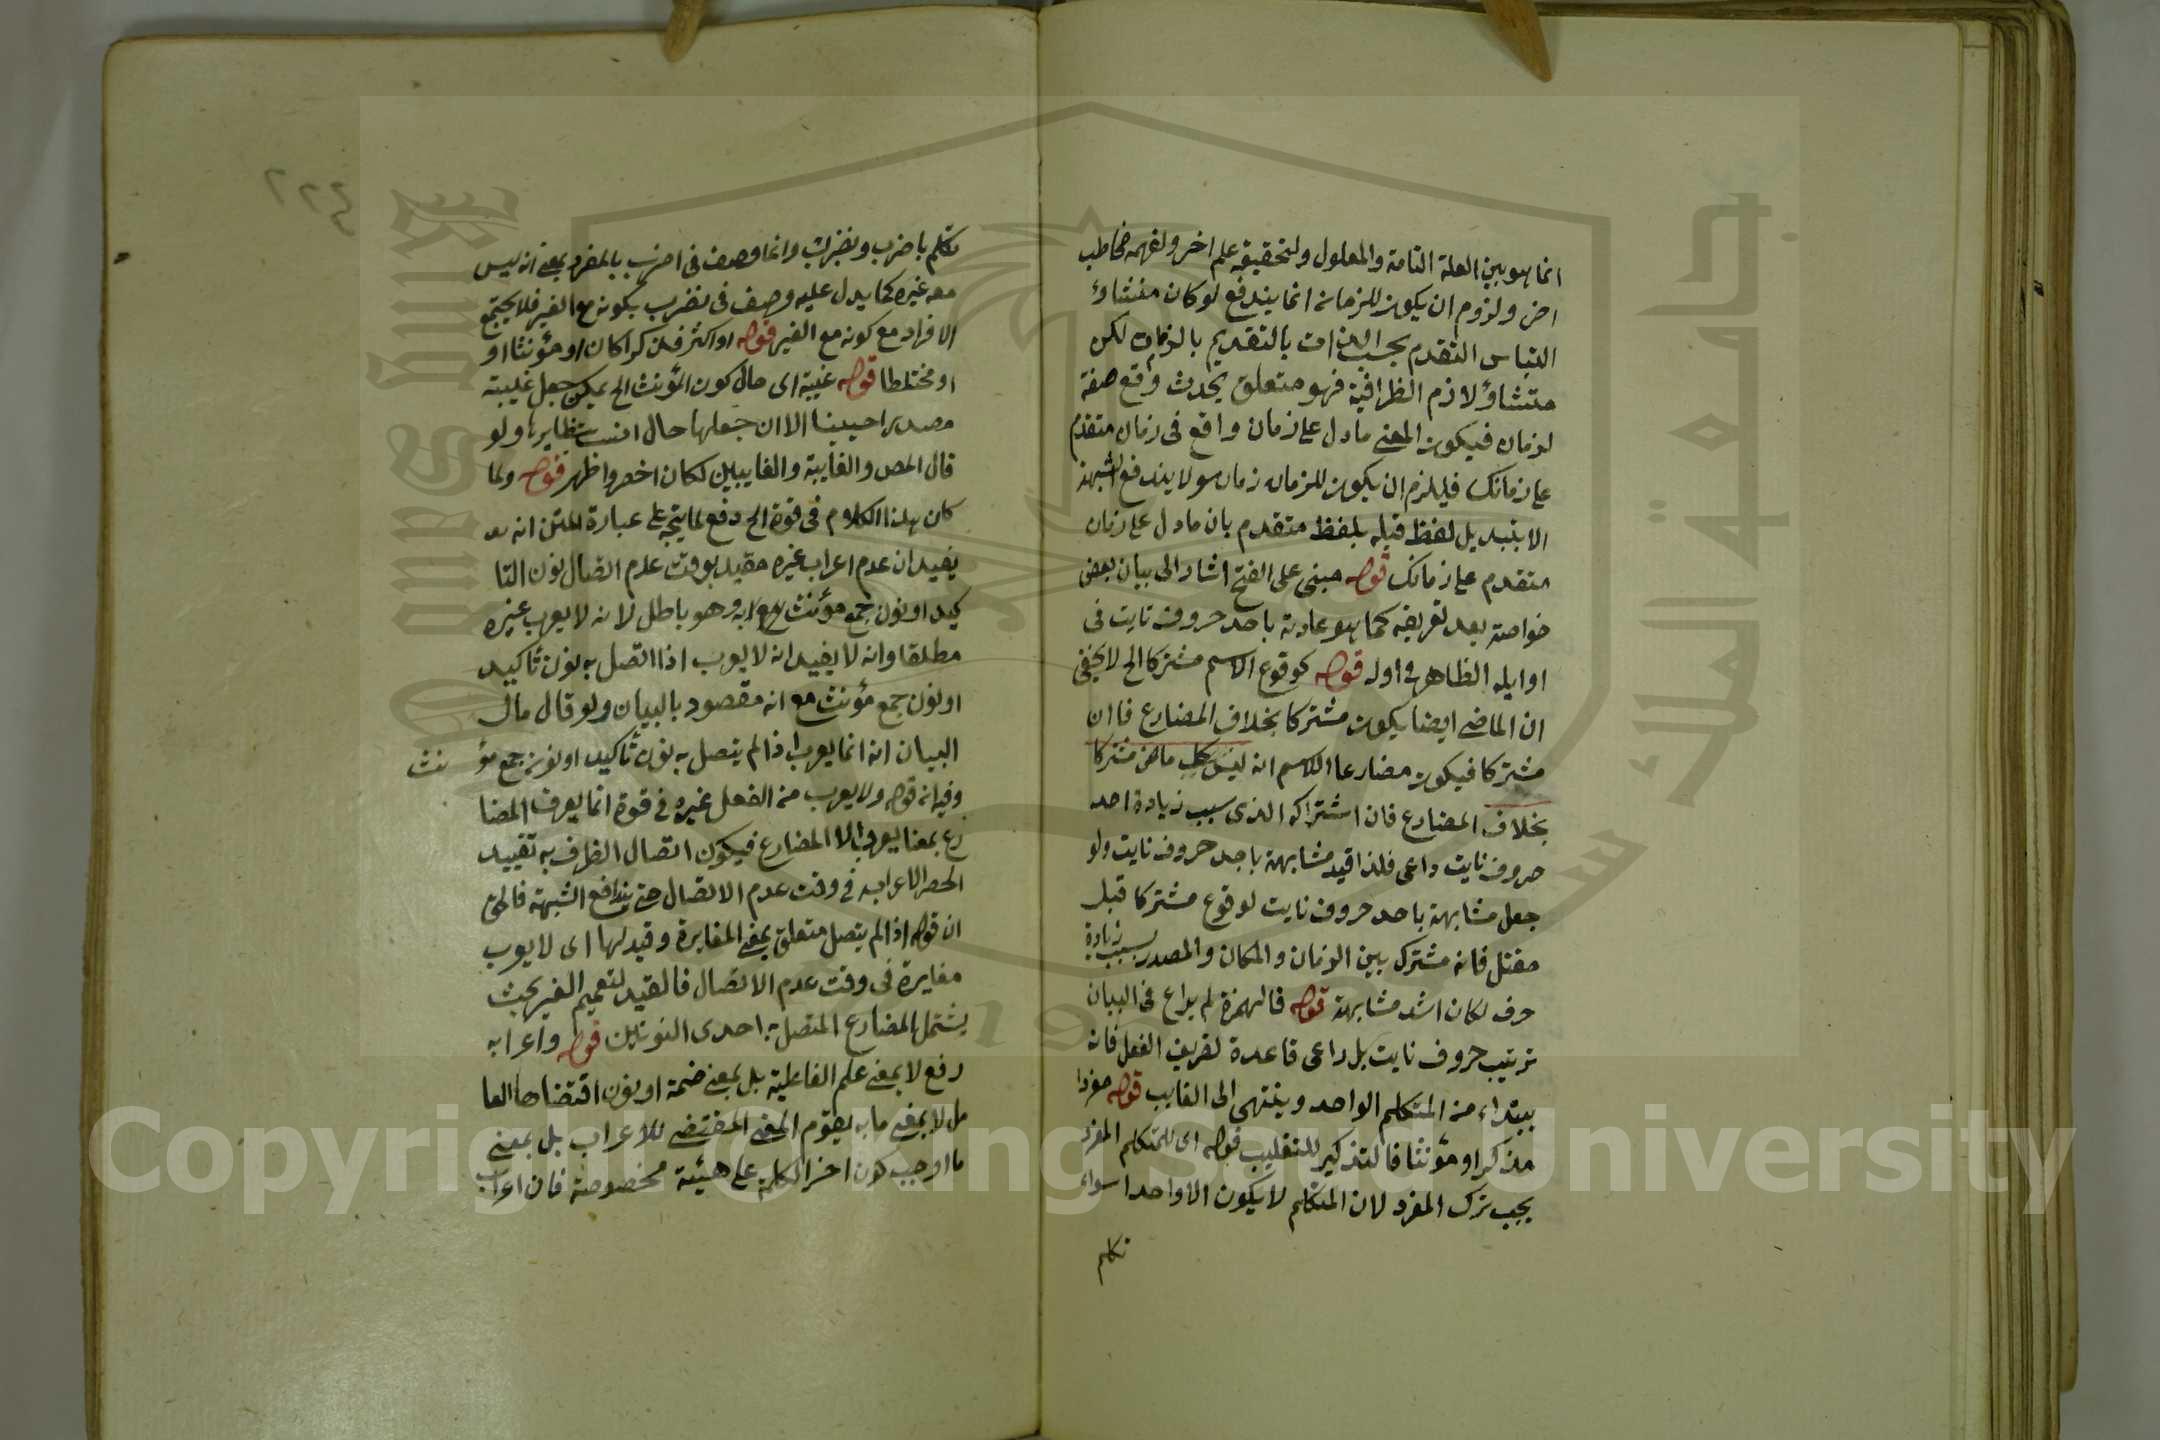 انما هو بين العلة التامة والمعلول ولتحقيقه علم اخر ولفهمه مخاطب
اخر ولزوم ان يكون للزمان انما يندفع لو كان منشاؤ
التباس التقدم بحسب الذات بالتقديم بالزمان لكن
منشاؤ لازم الظرافية فهو متعلق بحدث وقع صفة
لزمان فيكون المعنى ما دل على زمان واقع فى زمان متقدم
على زمانك فيلزم ان يكون للزمان زمان سولا يندفع الشبهة
الا بتبديل لفظ قبله بلفظ متقدم بان ما دل على زمان
متقدم على زمانك قوله مبنى على الفتح اشار الى بيان بعض
خواصه بعد تعريفه كما هو عادته باحد حروف نايت فى
اوايله الظاهر فى اوله قوله كوقوع الاسم مشتركا الخ لا يخفى
ان الماضى ايضا يكون مشتركا بخلاف المضارع فا ان
مشتركا فيكون مضارعا اللاسم انه ليس كل ماض مشتركا
بخلاف المضارع فان اشتراكه الذى سبب زيادة احد
حروف نايت داعى فلذا قيد مشابهة باحد حروف نايت ولو
جعل مشابهة باحد حروف نايت لوقوع مشتركا قبل
مقتل فانه مشترك بين الزمان والمكان والمصدر بسبب زيادة
حرف لكان اشد مشابهة قوله فالهمزة لم يراع فى البيان
ترتيب حروف نايت بل راعى قاعدة تعريف الفعل فانه
يبتداء من المتكلم الواحد وينتهى الى الغايب قوله مفردا
مذكرا او مؤنثا فالتذكير للتغليب قوله اى للمتكلم المفرد
يجب ترك المفرد لان المتكلم لا يكون الا واحدا سواء
تكلم
٢٢٤
تكلم باضرب و نضرب وانما وصف فى اضرب بالمفرد بمعنى انه ليس
معه غيره كما يدل عليه وصف فى نضرب بكونه مع الغير فلا يجتمع
الافراد مع كونه مع الغير قوله او اكثر فذكرا كان او مؤنثا او
او مختلطا قوله غيبة اى حال كون المؤنث الخ يمكن جعل غيبته
مصدرا حينا الا ان جعلها حال انسب بنظايرها ولو
قال المص والغايبة والغايبين لكان اخصر واظهر قوله ولما
كان هذا الكلام فى قوة الخ دفع لما يتجه على عبارة المتن انه
يفيد ان عدم اعراب غيره مقيد بوقت عدم اتصال نون التا
كيد او نون جمع مؤنث به وهو باطل لانه لا يعرب غيره
مطلقا وانه لا يفيد انه لا يعرب اذا اتصل به نون تأكيد
او نون جمع مؤنث مع انه مقصود بالبيان ولو قال مال
البيان انه انما يعرب اذا لم يتصل به نون تأكيد او نون جمع مؤ نث
وفيه انه قوله ولا يعرب من الفعل غيره فى قوة انما يعرف المضا
رع بمعنا يعرب الا المضارع فيكون اتصال الظرف به تقييد
الحصر الاعراب فى وقت عدم الاتصال حتى يندفع الشبهة فالحق
ان قوله اذا لم يتصل متعلق بمعنى المغايرة وقيد لها اى لا يعرب
مغايرة فى وقت عدم الاتصال فالقيد لتعميم الغير بحيث
يشتمل المضارع المتصل به احدى النونين قوله واعرابه
رفع لا بمعنى علم الفاعلية بل بمعنى ضمة او نون اقتضاها العا
مل لا بمعنى ما به يقوم المعنى المقتضى للاعراب بل بمعنى
ما اوجب كون اخر الكلمة على هيئة مخصوصة فان اعراب
جامعة الملك سعود
King Saud University
1957
Copyright © King Saud University